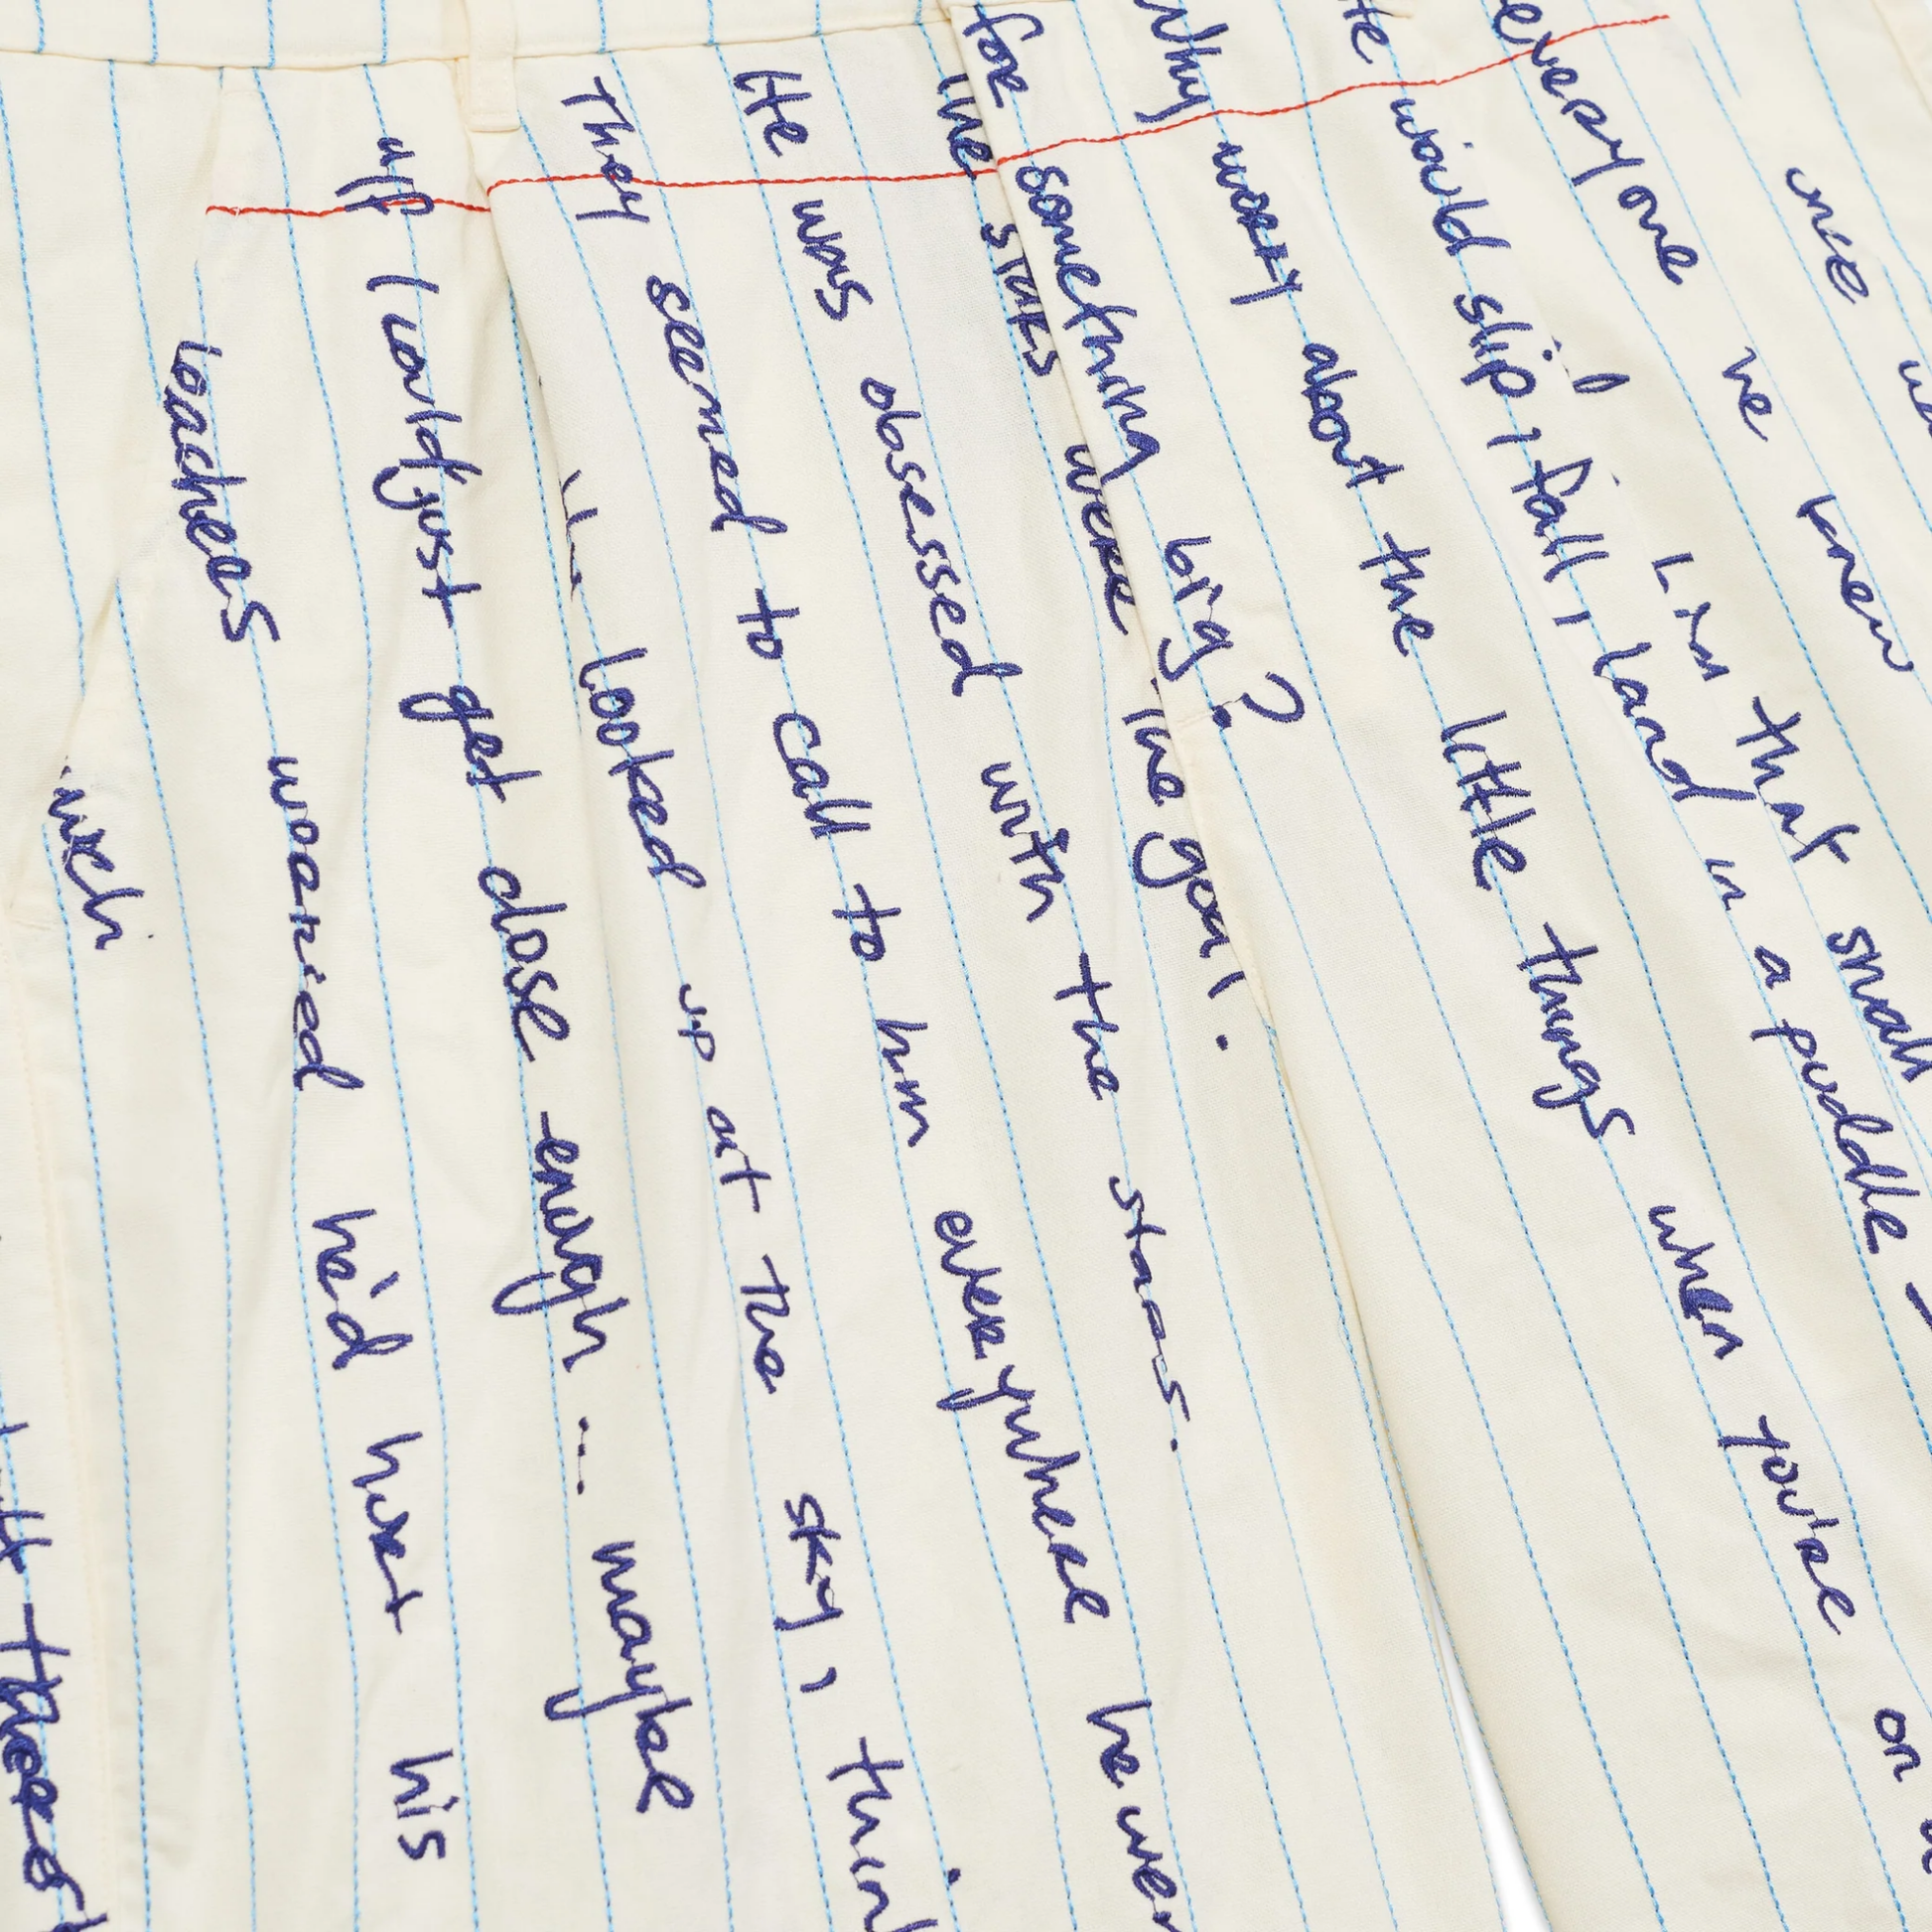 once
everyone he knew
him that small
would slip, fall, land in a puddle -
Why worry about the little things when you're on
for something big?
The stars were the goal.
He was obsessed with the stars.
They seemed to call to him everywhere he
looked up at the sky,
"If I could just get close enough ... maybe
teachers worried he'd hurt his